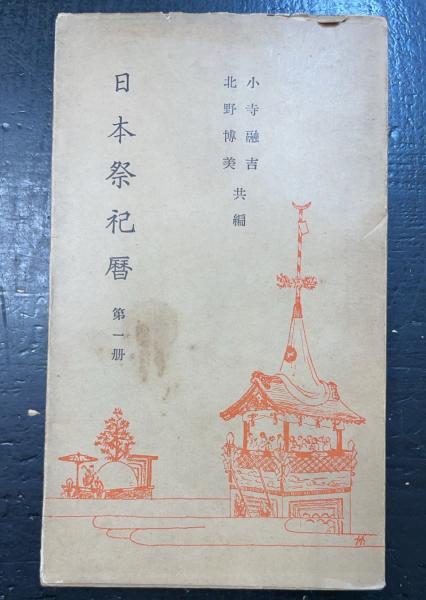 小寺融吉
北野博美
共編
日本祭祀暦
第一册